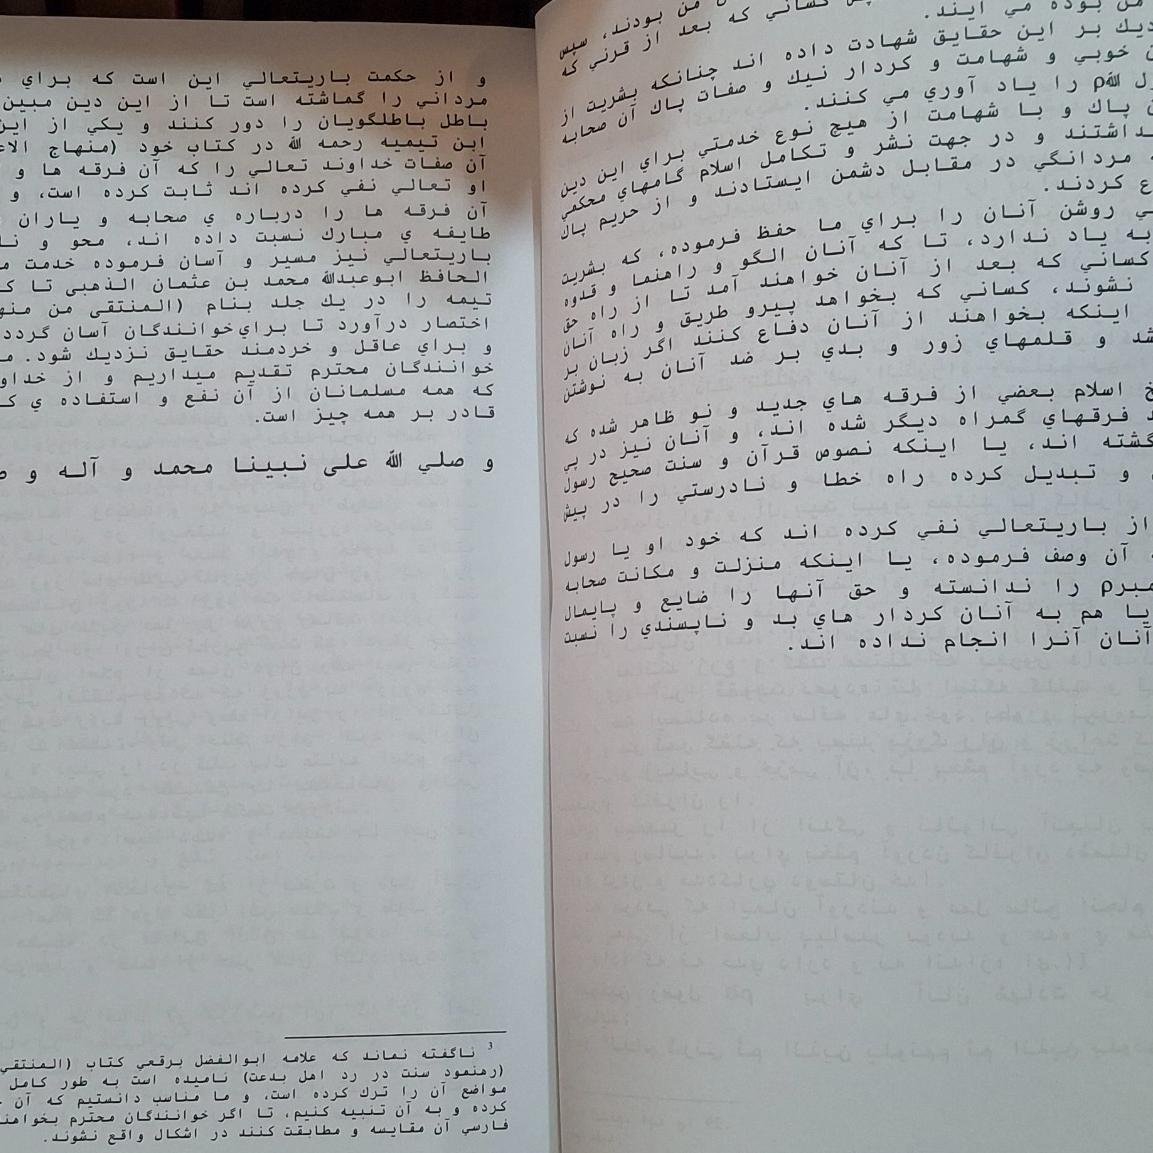 من بودند، سپس
كساني كه بعد از قرني كه
من بوده مي آيند.
ديك بر اين حقايق شهادت داده اند چنانكه بشريت از
ن خوبي و شهامت و كردار نيك و صفات پاك آن صحابه
ول اللهρ را ياد آوري مي كنند.
ن پاك و با شهامت از هيچ نوع خدمتي براي اين دين
داشتند و در جهت نشر و تكامل اسلام گامهاي محكمي
ه مردانگي در مقابل دشمن ايستادند و از حريم پاك
ع كردند.
ي روشن آنان را براي ما حفظ فرموده، كه بشريت
به ياد ندارد، تا كه آنان الگو و راهنما و قدوه
كساني كه بعد از آنان خواهند آمد تا از راه حق
نشوند، كساني كه بخواهد پيرو طريق و راه آنان
اينكه بخواهند از آنان دفاع كنند اگر زبان بر
شد و قلمهاي زور و بدي بر ضد آنان به نوشتن
خ اسلام بعضي از فرقه هاي جديد و نو ظاهر شده كه
د فرقهاي گمراه ديگر شده اند، و آنان نيز در پي
گشته اند، يا اينكه نصوص قرآن و سنت صحيح رسول
و تبديل كرده راه خطا و نادرستي را در پيش
از باريتعالي نفي كرده اند كه خود او يا رسول
آن وصف فرموده، يا اينكه منزلت و مكانت صحابه
مبرρ را ندانسته و حق آنها را ضايع و پايمال
يا هم به آنان كردار هاي بد و ناپسندي را نسبت
آنان آنرا انجام نداده اند.
و از حكمت باريتعالي اين است كه براي
مرداني را گماشته است تا از اين دين مبين
باطل باطلگويان را دور كنند و يكي از اين
ابن تيميه رحمه الله در كتاب خود (منهاج الاع
آن صفات خداوند تعالي را كه آن فرقه ها و
او تعالي نفي كرده اند ثابت كرده است، و
آن فرقه ها را درباره ي صحابه و ياران
طايفه ي مبارك نسبت داده اند، محو و نا
باريتعالي نيز مسير و آسان فرموده خدمت م
الحافظ ابوعبدالله محمد بن عثمان الذهبى تا ك
تيمه را در يك جلد بنام (المنتقى من منه
اختصار درآورد تا براي خوانندگان آسان گردد
و براي عاقل و خردمند حقايق نزديك شود. م
خوانندگان محترم تقديم ميداريم و از خداو
كه همه مسلمانان از آن نفع و استفاده ي ك
قادر بر همه چيز است.
و صلي الله على نبينا محمد و آله و ص
3 ناگفته نماند كه علامه ابوالفضل برقعي كتاب (المنتقي
(رهنمود سنت در رد اهل بدعت) ناميده است به طور كامل
مواضع آن را ترك كرده است، و ما مناسب دانستيم كه آن
كرده و به آن تنبيه كنيم، تا اگر خوانندگان محترم بخواهند
فارسي آن مقايسه و مطابقت كنند در اشكال واقع نشوند.